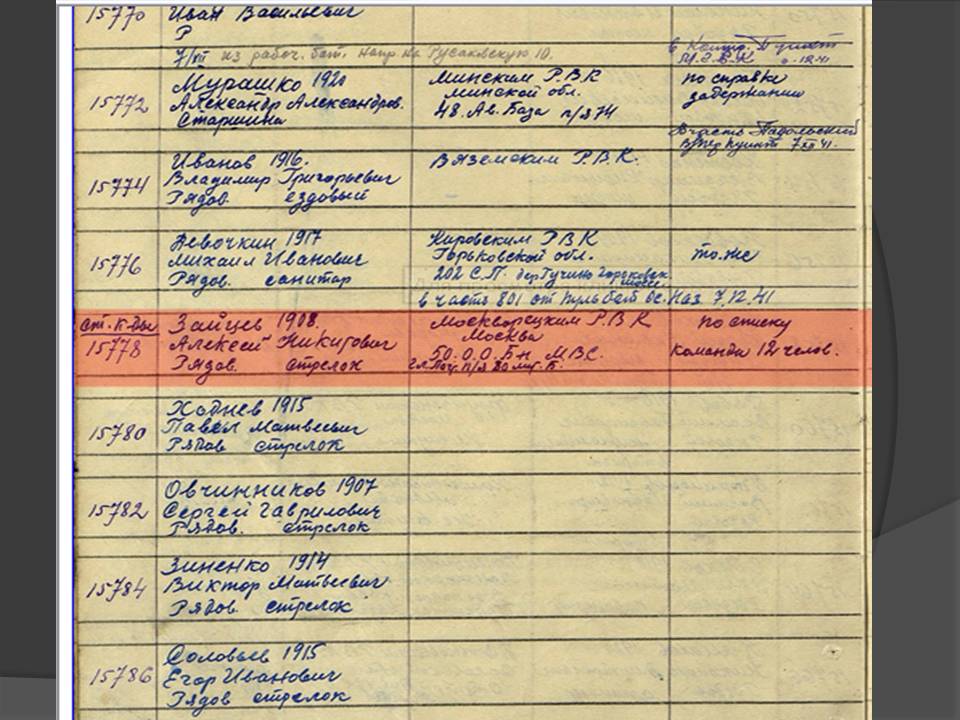 15770 Иван Васильевич
Р
7/XII из рабоч. бат. напр. на Гусаковскую 10. в Контр. Пункт
15772 Мурашко 1920 Минским Р.В.К по справке
Александр Александров. Минской обл. задержании
Старшина 48. Ав. База п/я 74
В часть Подольский
В/пер пункт 7 XII 41.
15774 Иванов 1916. Вяземским Р.В.К.
Владимир Григорьевич
Рядов. ездовый
15776 Девочкин 1917 Кировским Р.В.К то.же
Михаил Иванович Горьковской обл.
Рядов. санитар 202 С.П. дер Гучино Горьковск.
шоссе
в часть 801 от пульбат ос. Наз 7.12.41
ст. к-ды Зайцев 1908. Москворецким Р.В.К по списку
15778 Алексей Никитович Москва команды 12 челов.
Рядов. стрелок 50.О.О.Б-н М.В.С.
п/я 20
15780 Ходнев 1915
Павел Матвеевич
Рядов стрелок
15782 Овчинников 1907
Сергей Гаврилович
Рядов. стрелок
15784 Зиненко 1914
Виктор Матвеевич
Рядов. стрелок
15786 Соловьев 1915
Егор Иванович
Рядов стрелок